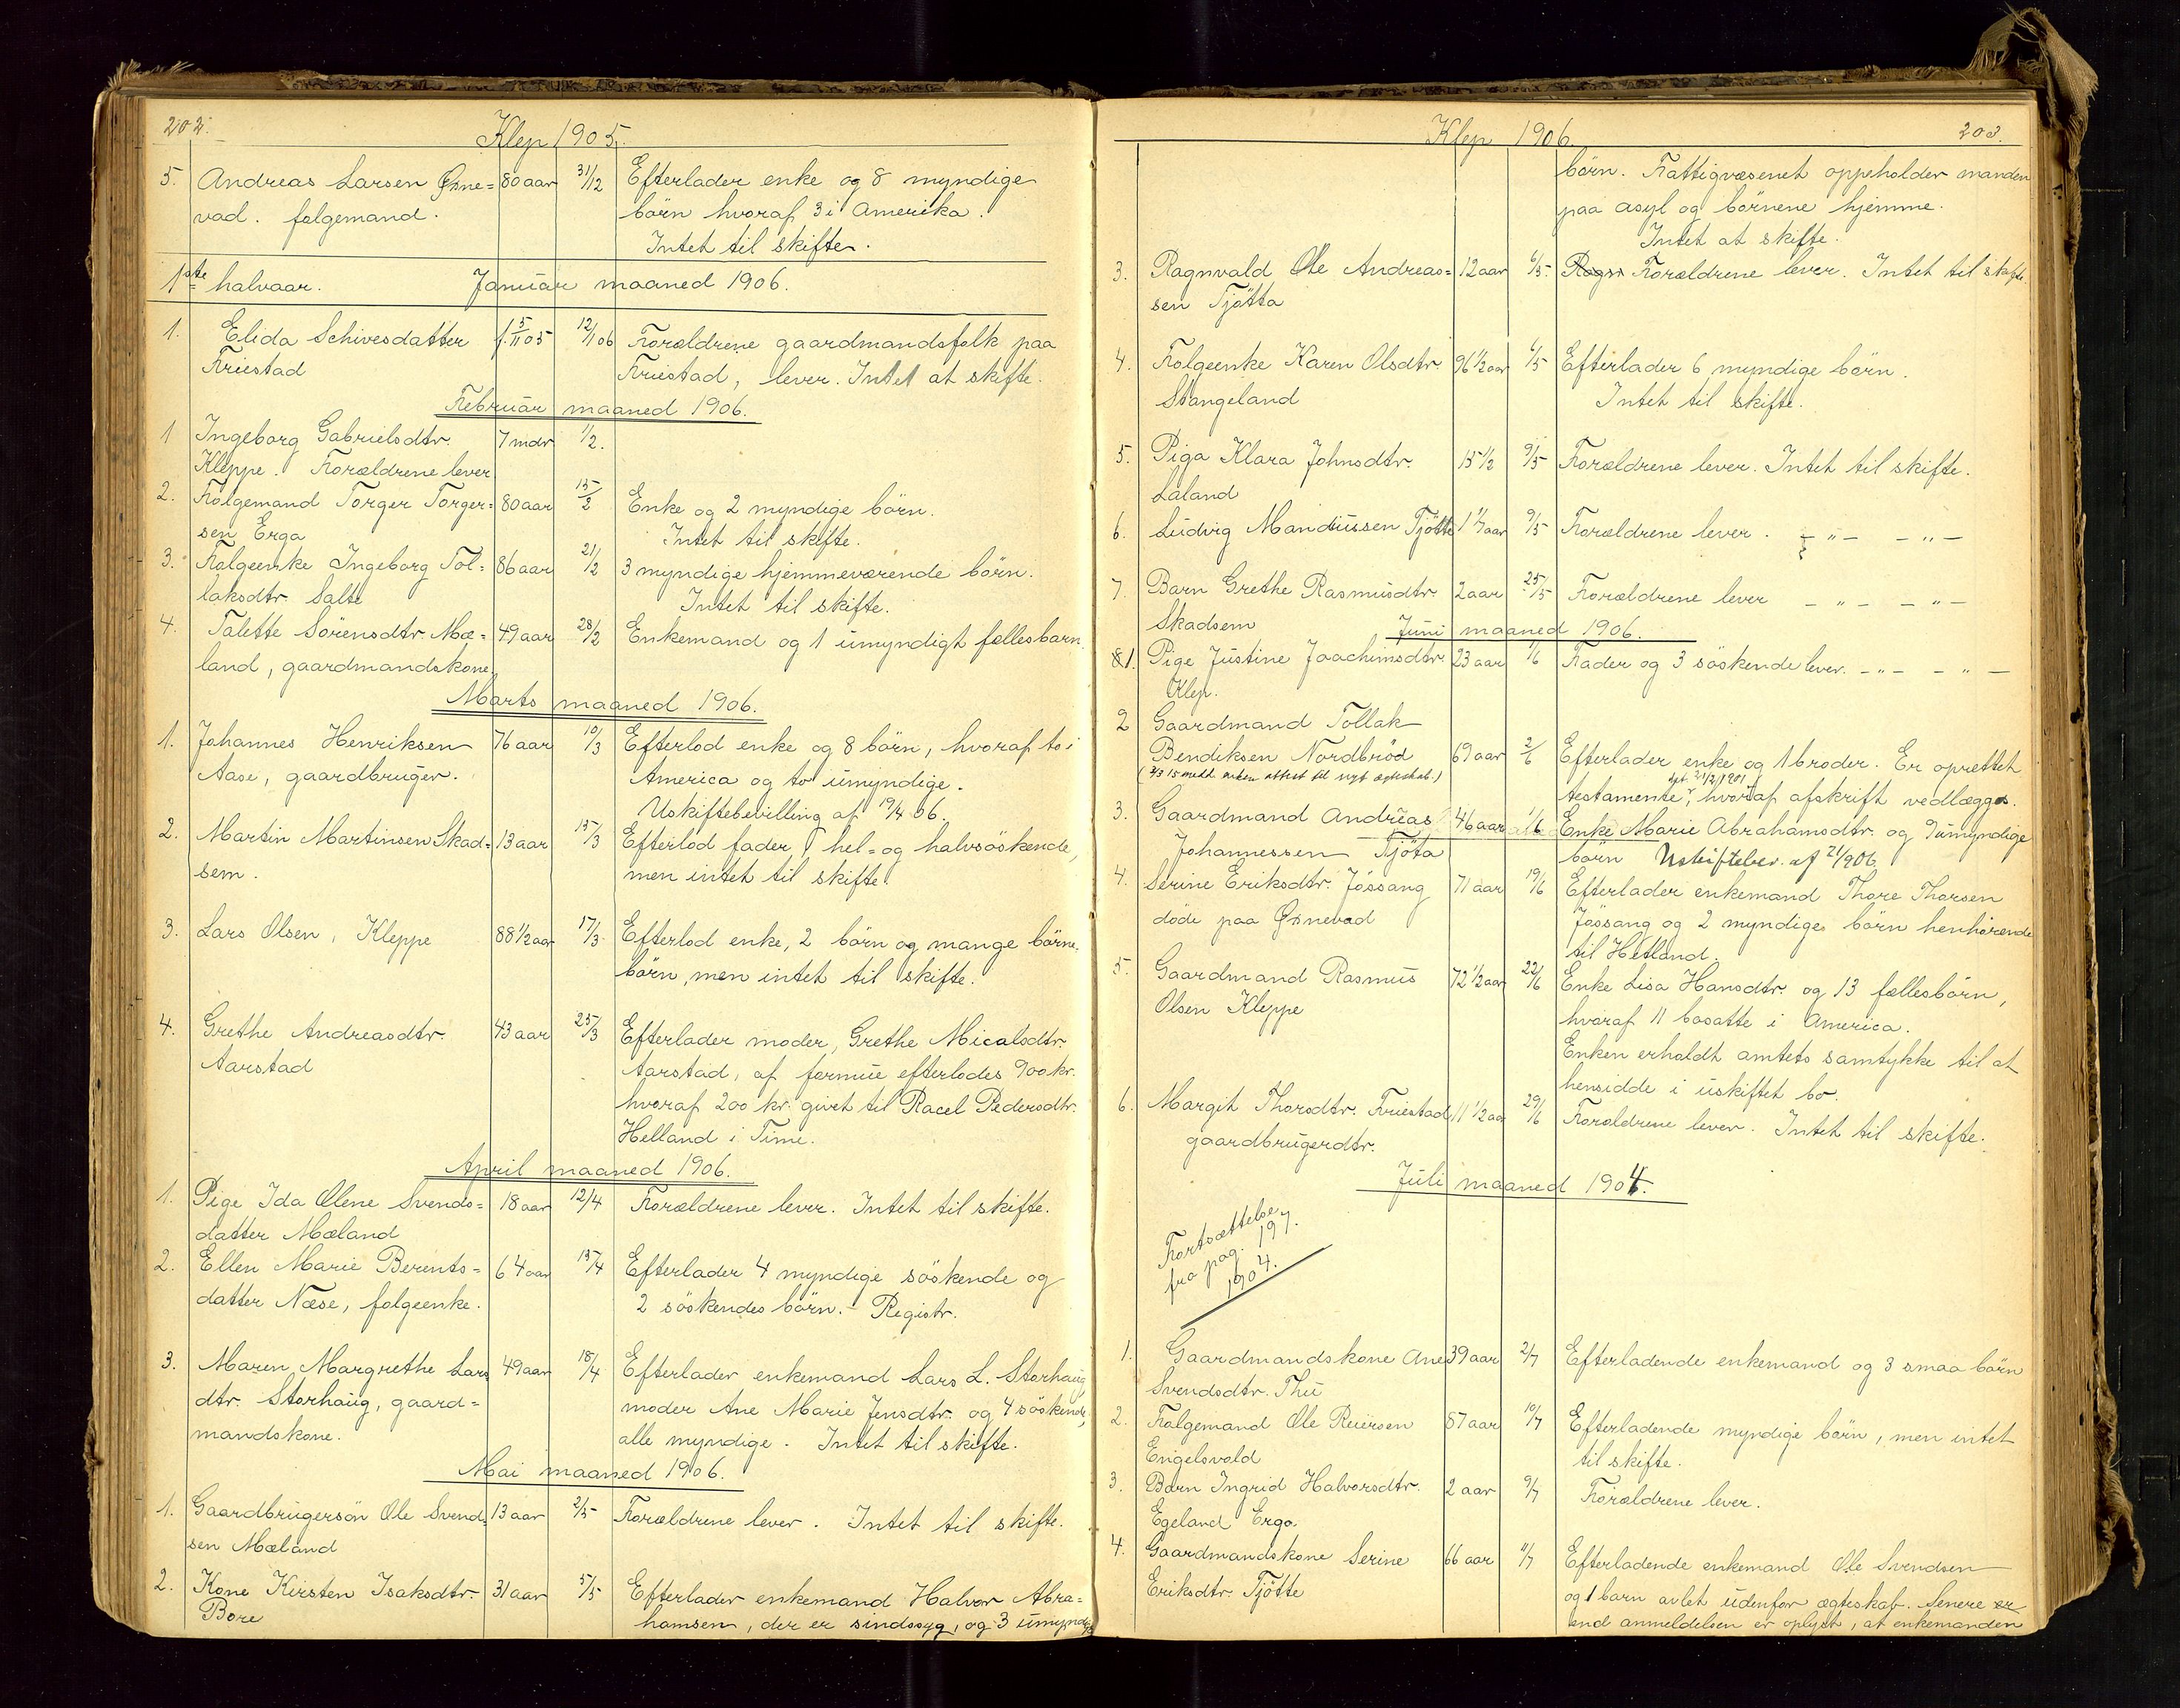 202.
Klep 1905.
5. Andreas Larsen Øxne= 80 aar 31/12 Efterlader enke og 8 myndige
vad. folgemand. börn hvoraf 3 i Amerika.
Intet til skifte.
1ste halvaar. Januar maaned 1906.
1. Elida Schivesdatter f. 5/11 05 12/1 06 Forældrene gaardmandsfolk paa
Friestad Friestad, lever. Intet at skifte.
Februar maaned 1906.
1 Ingeborg Gabrielsdtr. 7 mdr 1/2.
Kleppe. Forældrene lever
2. Folgemand Torger Torger= 80 aar 15/2 Enke og 2 myndige börn.
sen Erga Intet til skifte.
3. Folgeenke Ingeborg Tol= 86 aar 21/2 3 myndige hjemmeværende börn.
laksdtr. Salte Intet til skifte.
4. Talette Sörensdtr Mæ= 49 aar 28/2 Enkemand og 1 umyndigt fellesbarn.
land, gaardmandskone
Marts maaned 1906.
1. Johannes Henriksen 76 aar 10/3 Efterlod enke og 8 börn, hvoraf to i
Aase, gaardbruger. America og to umyndige.
Uskiftebevilling af 19/4 06.
2. Martin Martinsen Skad= 13 aar 15/3 Efterlod fader, hel= og halvsöskende,
sem. men intet til skifte.
3. Lars Olsen, Kleppe 88 1/2 aar 17/3. Efterlod enke, 2 börn og mange börne=
börn, men intet til skifte.
4. Grethe Andreasdtr. 43 aar 25/3 Efterlader moder, Grethe Micalsdtr.
Aarstad Aarstad, af formue efterlodes 900 kr.
hvoraf 200 kr. givet til Racel Pedersdtr.
Helland i Time.
April maaned 1906.
1. Pige Ida Olene Svends= 18 aar 12/4 Forældrene lever. Intet til skifte.
datter Mæland
2. Ellen Marie Berents= 64 aar 15/4 Efterlader 4 myndige söskende og
datter Næse, folgeenke. 2 söskendes börn. - Registr.
3. Maren Margrethe Lars 49 aar 18/4 Efterlader enkemand Lars L. Storhaug,
dtr. Storhaug, gaard= moder Ane Marie Jensdtr. og 4 söskende,
mandskone. alle myndige. Intet til skifte.
Mai maaned 1906.
1. Gaardbrugersön Ole Svend= 13 aar 2/5 Forældrene lever. Intet til skifte.
sen Mæland
2. Kone Kirsten Isaksdtr. 31 aar 5/5 Efterlader enkemand Halvor Abra=
Bore hamsen, der er sindssyg, og 3 umyndige
Klep 1906. 203.
börn. Fattigvæsenet oppeholder manden
paa asyl og börnene hjemme.
Intet at skifte.
3. Ragnvald Ole Andreas= 12 aar 6/5. Ragn Forældrene lever. Intet til skifte.
sen Tjötta
4. Folgeenke Karen Olsdtr. 96 1/2 aar 6/5 Efterlader 6 myndige börn.
Stangeland Intet til skifte.
5. Piga Klara Johnsdtr. 15 1/2 9/5 Forældrene lever. Intet til skifte.
Laland
6. Ludvig Mandiussen Tjötte aar 9/5 Forældrene lever. - " - - " -
7. Barn Grethe Rasmusdtr. 2 aar 25/5 Forældrene lever - " - - " -
Skadsem
Juni maaned 1906.
81. Pige Justine Joachimsdtr. 23 aar 1/6 Fader og 3 söskende lever. - " - - " -
Klep.
2 Gaardmand Tollak
Bendiksen Nordbröd 69 aar 2/6 Efterlader enke og 1 broder. Er oprettet
(4/3 15 medd. enken attest til nyt ægteskab.) testamente dat. 21/2 1901, hvoraf afskrift vedlægges.
3. Gaardmand Andreas 46 aar 1/6 Enke Marie Abrahamsdtr. og 9 umyndige
Johannessen Tjöta börn Uskiftebev. af 21/9 06
4. Serine Eriksdtr. Jössang 71 aar 19/6 Efterlader enkemand Thore Thorsen
döde paa Øxnevad Jössang og 2 myndige börn henhörende
til Hetland.
5. Gaardmand Rasmus 72 1/2 aar 22/6 Enke Lisa Hansdtr. og 13 fællesbörn,
Olsen Kleppe hvoraf 11 bosatte i America.
Enken erholdt amtets samtykke til at
hensidde i uskiftet bo.
6. Margit Thorsdtr. Friestad 11 1/2 aar 29/6 Forældrene lever. Intet til skifte.
gaardbrugerdtr.
Juli maaned 1904.
Fortsættelse
fra pag. 197.
1904.
1. Gaardmandskone Ane 39 aar 2/7 Efterladende enkemand og 3 smaa börn
Svendsdtr. Thu
2. Folgemand Ole Reiersen 87 aar 10/7 Efterladende myndige börn, men intet
Engelsvold til skifte.
3. Barn Ingrid Halvorsdtr. 2 aar 9/7 Forældrene lever.
Egeland Erga.
4. Gaardmandskone Serine 66 aar 11/7 Efterladende enkemand Ole Svendsen
Eriksdtr. Tjötte og 1 barn avlet udenfor ægteskab. Senere er
end anmeldelsen er oplyst, at enkemanden